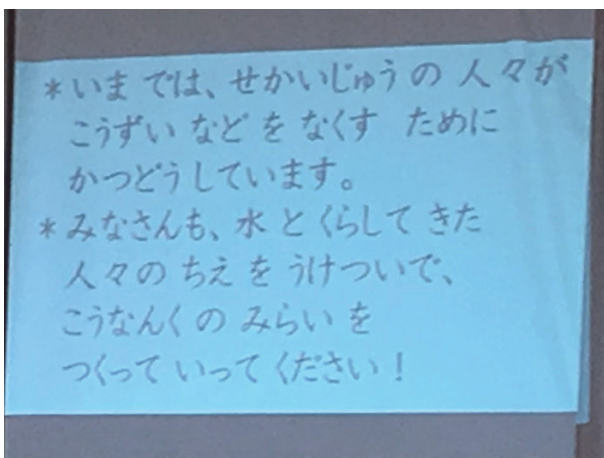 *いま では、せかいじゅう の 人々が
こうずい など を なくす ために
かつどうしています。
*みなさんも、水 と くらして きた
人々の ちえ を うけついで、
こうなんく の みらい を
つくって いって ください！